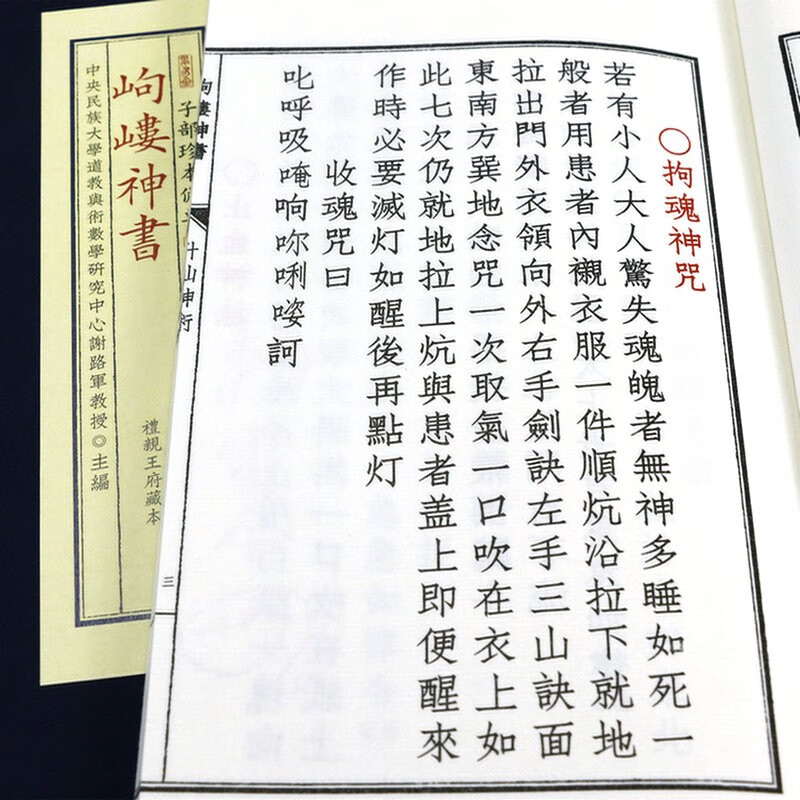 〇拘魂神咒
若有小人大人驚失魂魄者無神多睡如死一
般者用患者內襯衣服一件順炕沿拉下就地
拉出門外衣領向外右手劍訣左手三山訣面
東南方巽地念咒一次取氣一口吹在衣上如
此七次仍就地拉上炕與患者盖上即便醒來
作時必要滅灯如醒後再點灯
收魂咒曰
叱呼吸唵响㖇唎㗒訶
岣嶁神書
三
子部珍本
岣嶁神書
中央民族大學道教與術數學研究中心謝路軍教授◎主編
禮親王府藏本